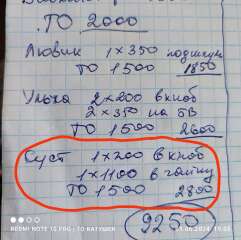 ТО 2000
Любим 1×350 подшипн
ТО 1500 1850
Ульха 2×200 в кноб
2×350 на БВ
ТО 1500 2600
Суст 1×200 в кноб
1×1100 в гайку
ТО 1500 2800
9250
REDMI NOTE 10 PRO · ТО КАТУШЕК